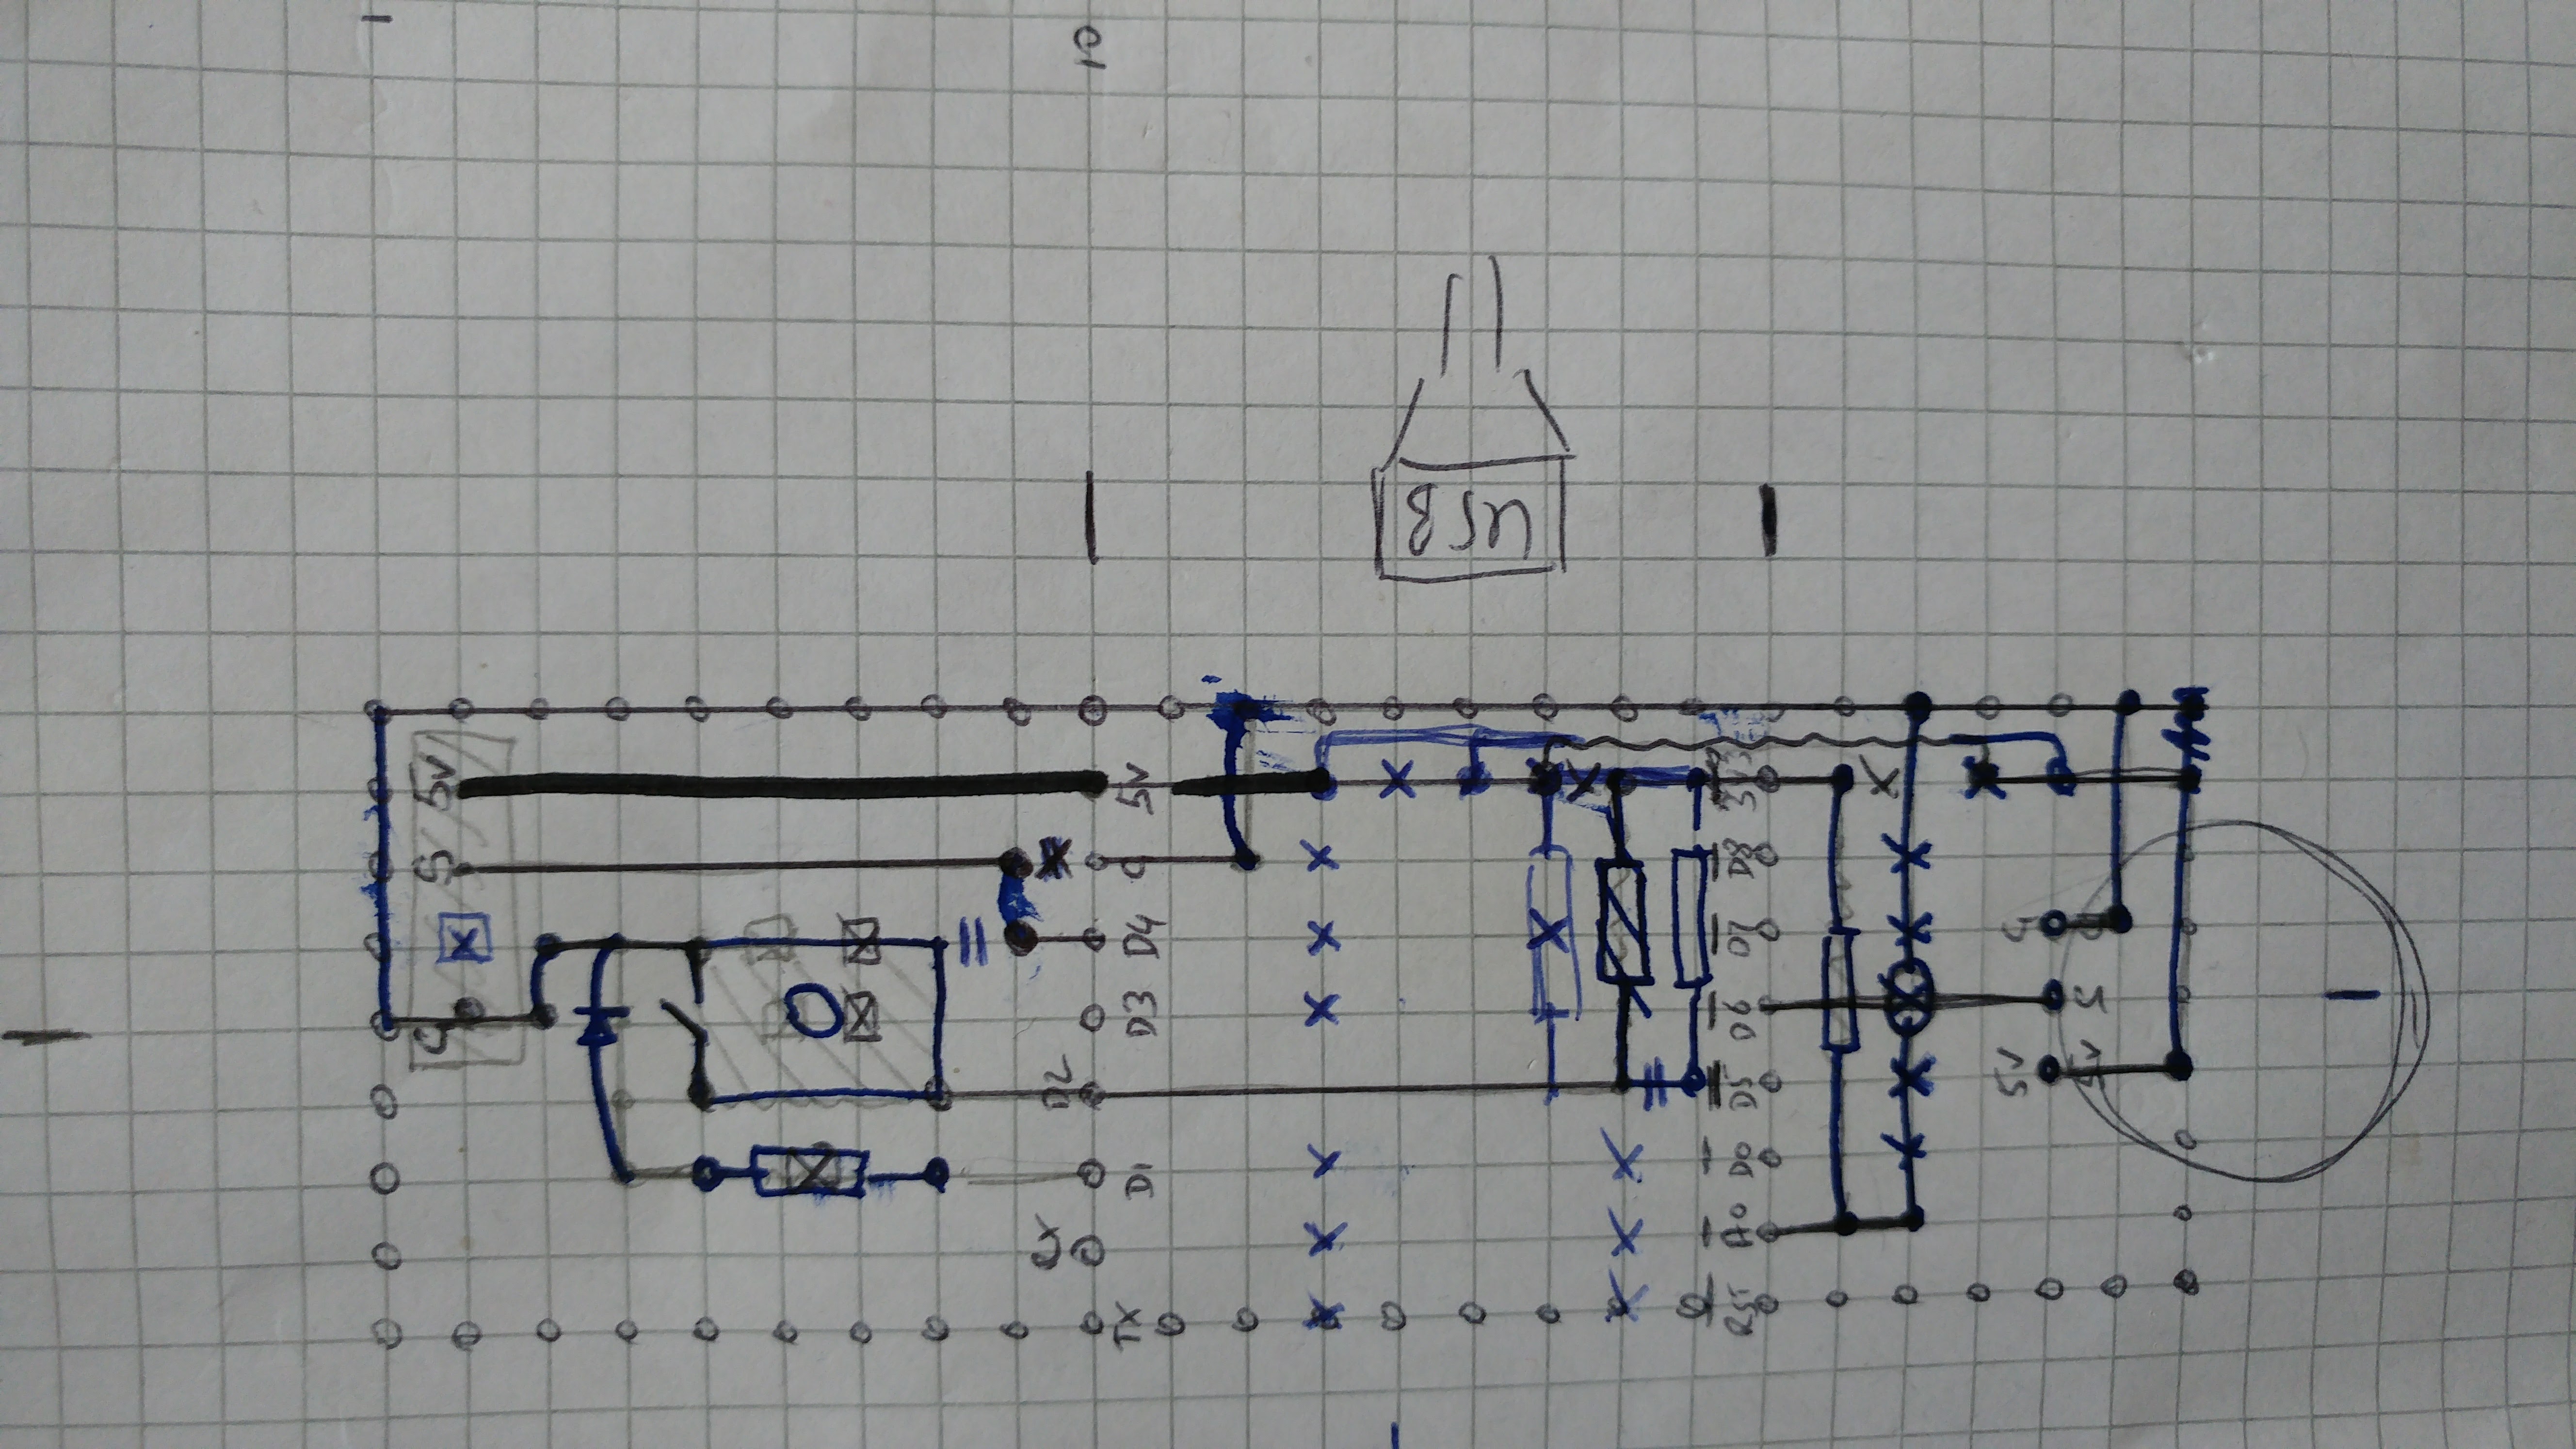 1
G S 5V
RX D2
10
TX D1 D3 D4 G 5V
USB
RST A0 D0 D5 D6 D7 D8 3V3
5V G
5V S G